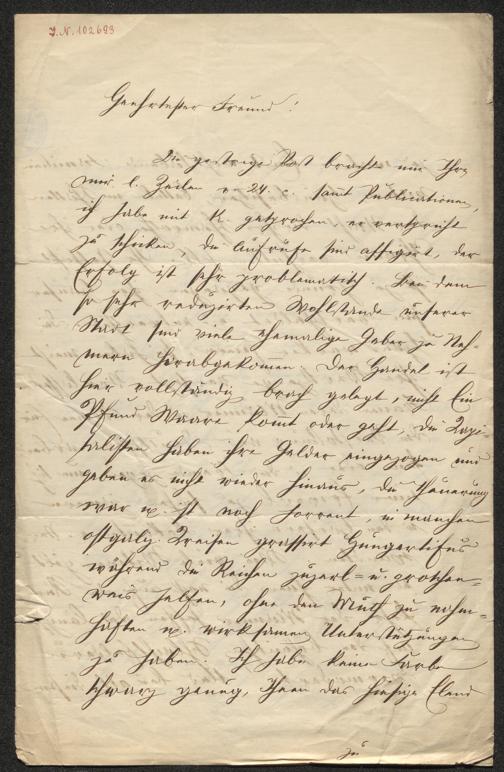 J.N. 102693
Geehrtester Freund!
Die gestrige Post bracht mir Ihre
mir l. Zeilen v. 24. c. samt Publicationen,
ich habe mit K. gesprochen, er verspricht
zu schicken, die Aufrufe sind affigirt, der
Erfolg ist sehr problematisch. Bei dem
so sehr reduzirten Wohlstande unserer
Stadt sind viele ehemalige Geber zu Neh-
mern herabgekommen. Der Handel ist
hier vollständig brach gelegt, nicht Ein
Pfund Waare komt oder geht, die Kapi-
talisten haben ihre Gelder eingezogen und
geben es nicht wieder hinaus, die Theuerung
war u. ist noch horrent, in manchen
ostgaliz. Kreisen grassirt Hungertifus
während die Reichen
weis helfen, ohne den Muth zu nahm-
haften u. wirksamen Unterstützungen
zu haben. Ich habe keine Farbe
schwarz genug, Ihnen das hiesige Elend
zu